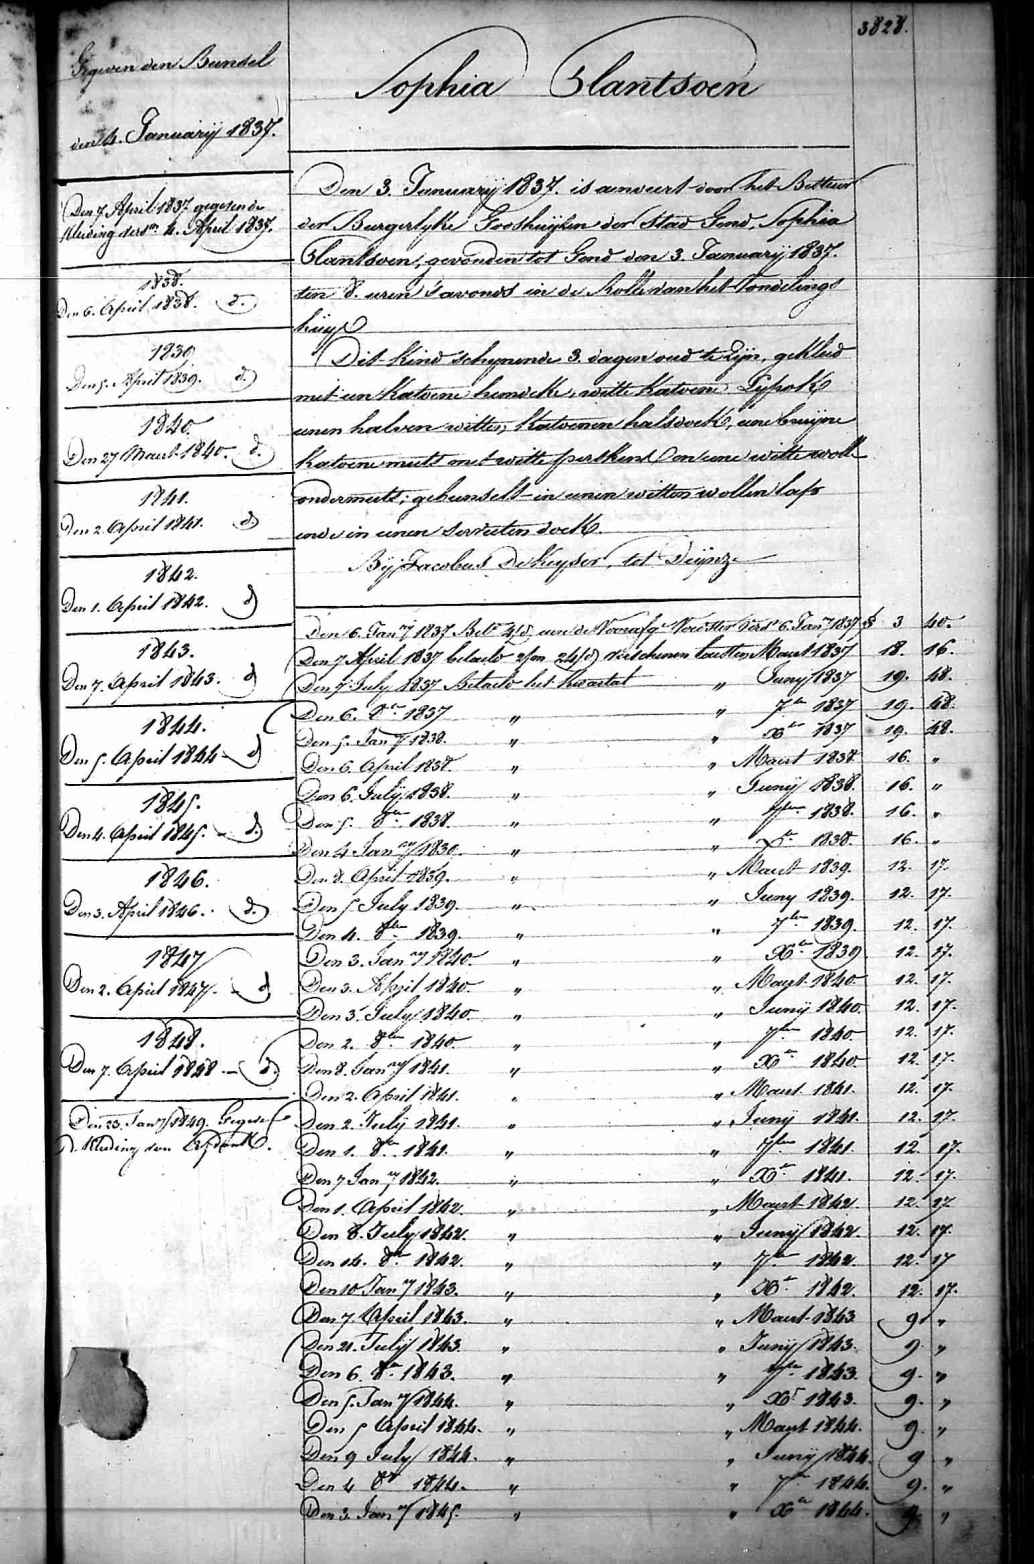 3828.
Sophia Plantsoen
Gegeven den Bundel
den 4. Januarij 1837.
Den 7 April 1837 gegeven de
kleeding verst. 4. April 1837.
1838.
Den 6. April 1838. d.
1839
Den 5. April 1839. d.
1840.
Den 27 Maert 1840. d.
1841.
Den 2. April 1841. d
1842.
Den 1. April 1842. d
1843.
Den 7. April 1843. d
1844.
Den 5. April 1844 d
1845.
Den 4. April 1845. d.
1846.
Den 3. April 1846. d.
1847
Den 2. April 1847. d
1848.
Den 7. April 1848 d.
Den 23. Jany 1849. Gegeve
d. kleeding van
Den 3. Januarij 1837. is anveert door het Bestuur
der Burgerlyke Godshuijsen der Stad Gend, Sophia
Plantsoen, gevonden tot Gend den 3. Januarij 1837.
ten 8. uren savonds in de Rolle van het Vondelings
huys
Dit kind schynende 3. dagen oud te zijn, gekleed
met een katoene hemdeke, witte katoene Lyfrok
eenen halven witten katoenen halsdoek, eene bruijne
katoene muts met witte en eene witte wolle
ondermuts; gebunselt in eenen witten wollen lap
ende in eenen servietendoek.
Bij Jacobus DeKeyser, tot Deijnze
Den 6. Jany 1837 Bet. aen de Voorsg. Voedster 6. Jany 1837 3 40.
Den 7 April 1837 betaeld verschenen lactsten Maert 1837 18. 16.
Den 7 July 1837 Betaeld het kwartael " Juny 1837 19. 48.
Den 6. 8ber 1837 " " 7ber 1837 19. 48.
Den 5. Jany 1838. " " Xber 1837 19. 48.
Den 6. April 1838. " " Maert 1838 16. "
Den 6. July 1838. " " Junij 1838. 16. "
Den 5. 8ber 1838. " " 7ber 1838. 16. "
Den 4 Jany 1839. " " Xber 1838. 16. "
Den 8. April 1839. " " Maert 1839. 12. 17.
Den 5 July 1839. " " Juny 1839. 12. 17.
Den 4. 8ber 1839. " " 7ber 1839. 12. 17.
Den 3. Jany 1840 " " Xber 1839 12. 17.
Den 3. April 1840. " " Maert 1840 12. 17.
Den 3. July 1840. " " Junij 1840. 12. 17.
Den 2. 8ber 1840. " " 7ber 1840. 12. 17.
Den 8. Jany 1841. " " Xber 1840 12. 17.
Den 2. April 1841. " " Maert 1841. 12. 17.
Den 2. July 1841 " " Junij 1841. 12. 17.
Den 1. 8ber 1841. " " 7ber 1841 12. 17.
Den 7 Jany 1842. " " Xber 1841. 12. 17.
Den 1. April 1842. " " Maert 1842 12. 17.
Den 8. July 1842. " " Junij 1842. 12. 17.
Den 14. 8ber 1842. " " 7ber 1842. 12. 17
Den 10 Jany 1843. " " Xber 1842. 12. 17.
Den 7. April 1843. " " Maert 1843 9. "
Den 21. July 1843. " " Junij 1843. 9. "
Den 6. 8ber 1843. " " 7ber 1843 9. "
Den 5. Jany 1844. " " Xber 1843. 9. "
Den 5 April 1844. " " Maert 1844. 9. "
Den 9 July 1844. " " Junij 1844. 9 "
Den 4 8ber 1844. " " 7ber 1844. 9. "
Den 3. Jany 1845. " " Xber 1844. 9. "